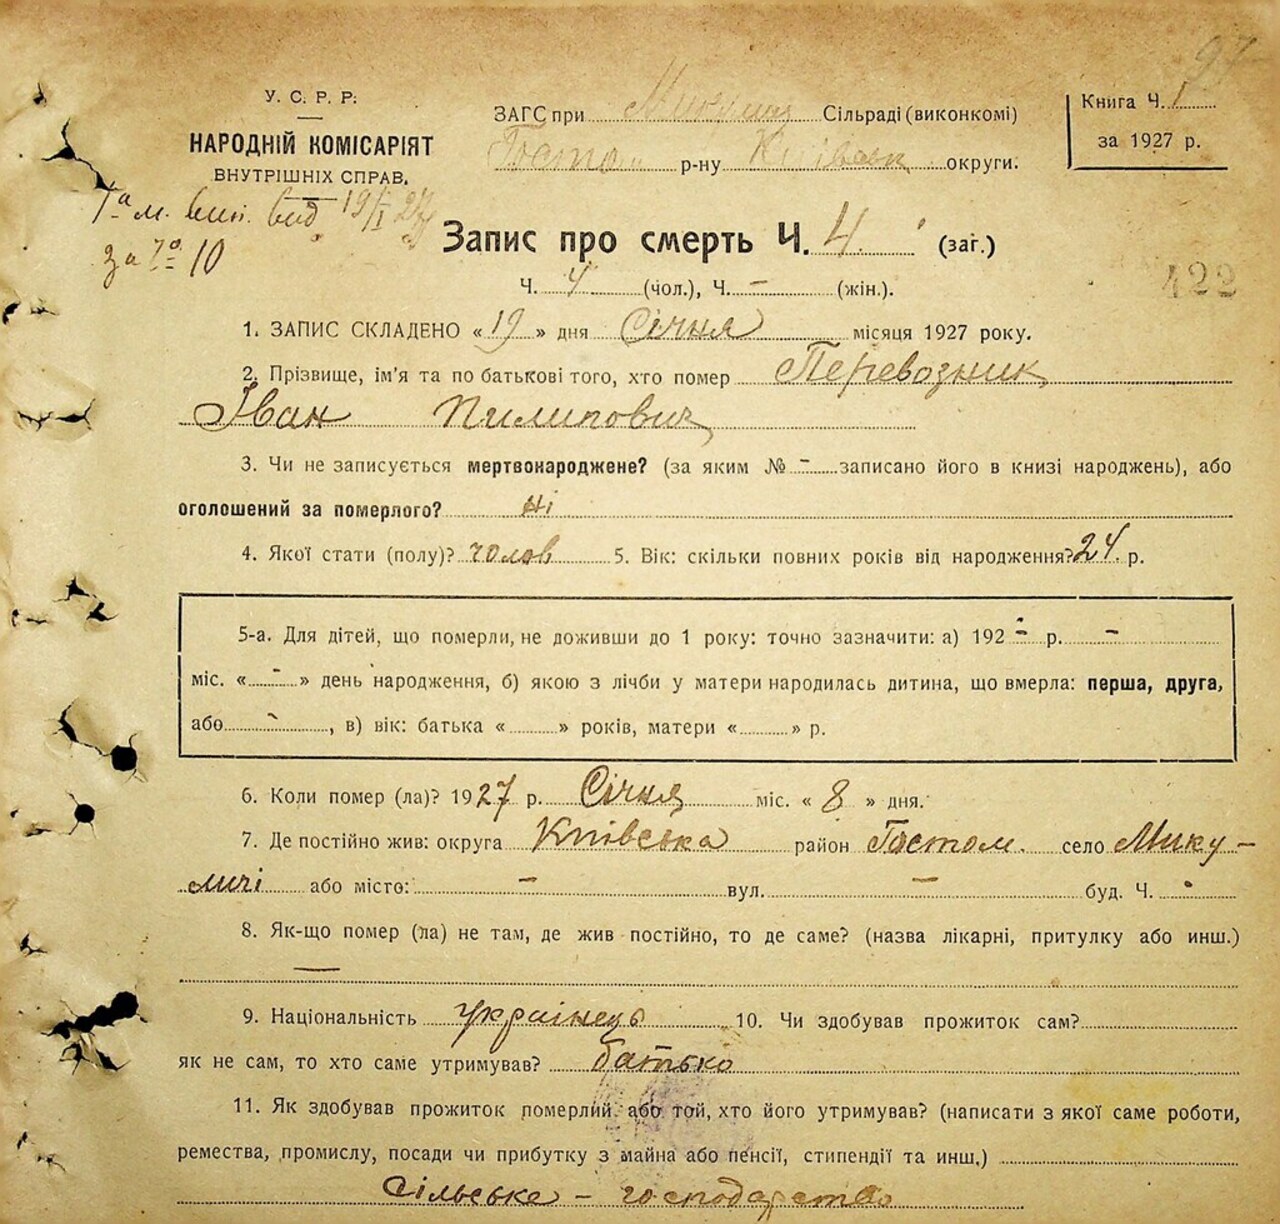 97
У. С. Р. Р.
НАРОДНІЙ КОМІСАРІЯТ
ВНУТРІШНІХ СПРАВ.
ЗАГС при Микулиц Сільраді (виконкомі)
Гостом р-ну Київськ округи.
Книга Ч. 1
за 1927 р.
1а м. вип. вид 19/I 27
за № 10
Запис про смерть Ч. 4 (заг.)
Ч. 4 (чол.), Ч. - (жін.).
422
1. ЗАПИС СКЛАДЕНО «19» дня Січня місяця 1927 року.
2. Прізвище, ім'я та по батькові того, хто помер Перевозник
Іван Пилипович
3. Чи не записується мертвонароджене? (за яким № - записано його в книзі народжень), або
оголошений за померлого? ні
4. Якої стати (полу)? чолов 5. Вік: скільки повних років від народження? 24 р.
5-а. Для дітей, що померли, не доживши до 1 року: точно зазначити: а) 192 - р. -
міс. « - » день народження, б) якою з лічби у матери народилась дитина, що вмерла: перша, друга,
або - , в) вік: батька « » років, матери « » р.
6. Коли помер (ла)? 1927 р. Січня міс. « 8 » дня.
7. Де постійно жив: округа Київська район Гостом. село Мику-
личі або місто: - вул. - буд. Ч. -
8. Як-що помер (ла) не там, де жив постійно, то де саме? (назва лікарні, притулку або инш.)
—
9. Національність українець 10. Чи здобував прожиток сам?
як не сам, то хто саме утримував? батько
11. Як здобував прожиток померлий або той, хто його утримував? (написати з якої саме роботи,
ремества, промислу, посади чи прибутку з майна або пенсії, стипендії та инш.)
Сільське - господарство